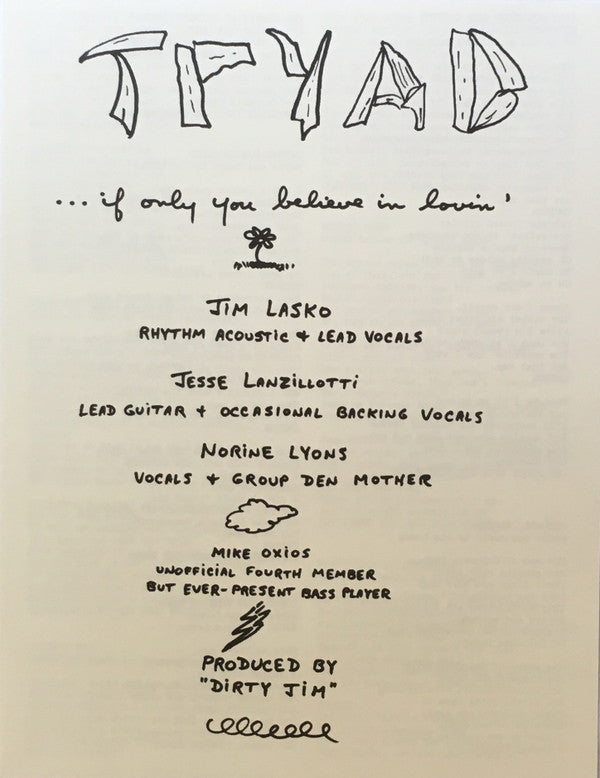 TRYAD
... if only you believe in lovin'
JIM LASKO
RHYTHM ACOUSTIC + LEAD VOCALS
JESSE LANZILLOTTI
LEAD GUITAR + OCCASIONAL BACKING VOCALS
NORINE LYONS
VOCALS + GROUP DEN MOTHER
MIKE OXIOS
UNOFFICIAL FOURTH MEMBER
BUT EVER-PRESENT BASS PLAYER
PRODUCED BY
"DIRTY JIM"